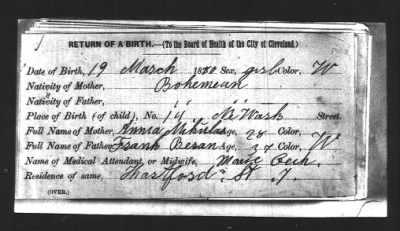 RETURN OF A BIRTH.—(To the Board of Health of the City of Cleveland.)
Date of Birth, 19 March 1880 Sex, girl Color, W
Nativity of Mother, Bohemean
Nativity of Father, " "
Place of Birth (of child), No. 14 Street.
Full Name of Mother, Annia Mikulas Age, 28 Color,
Full Name of Father, Frank Beran Age, 37 Color, W
Name of Medical Attendant, or Midwife, Marie Cech.
Residence of same, Hartford St 7.
(OVER.)